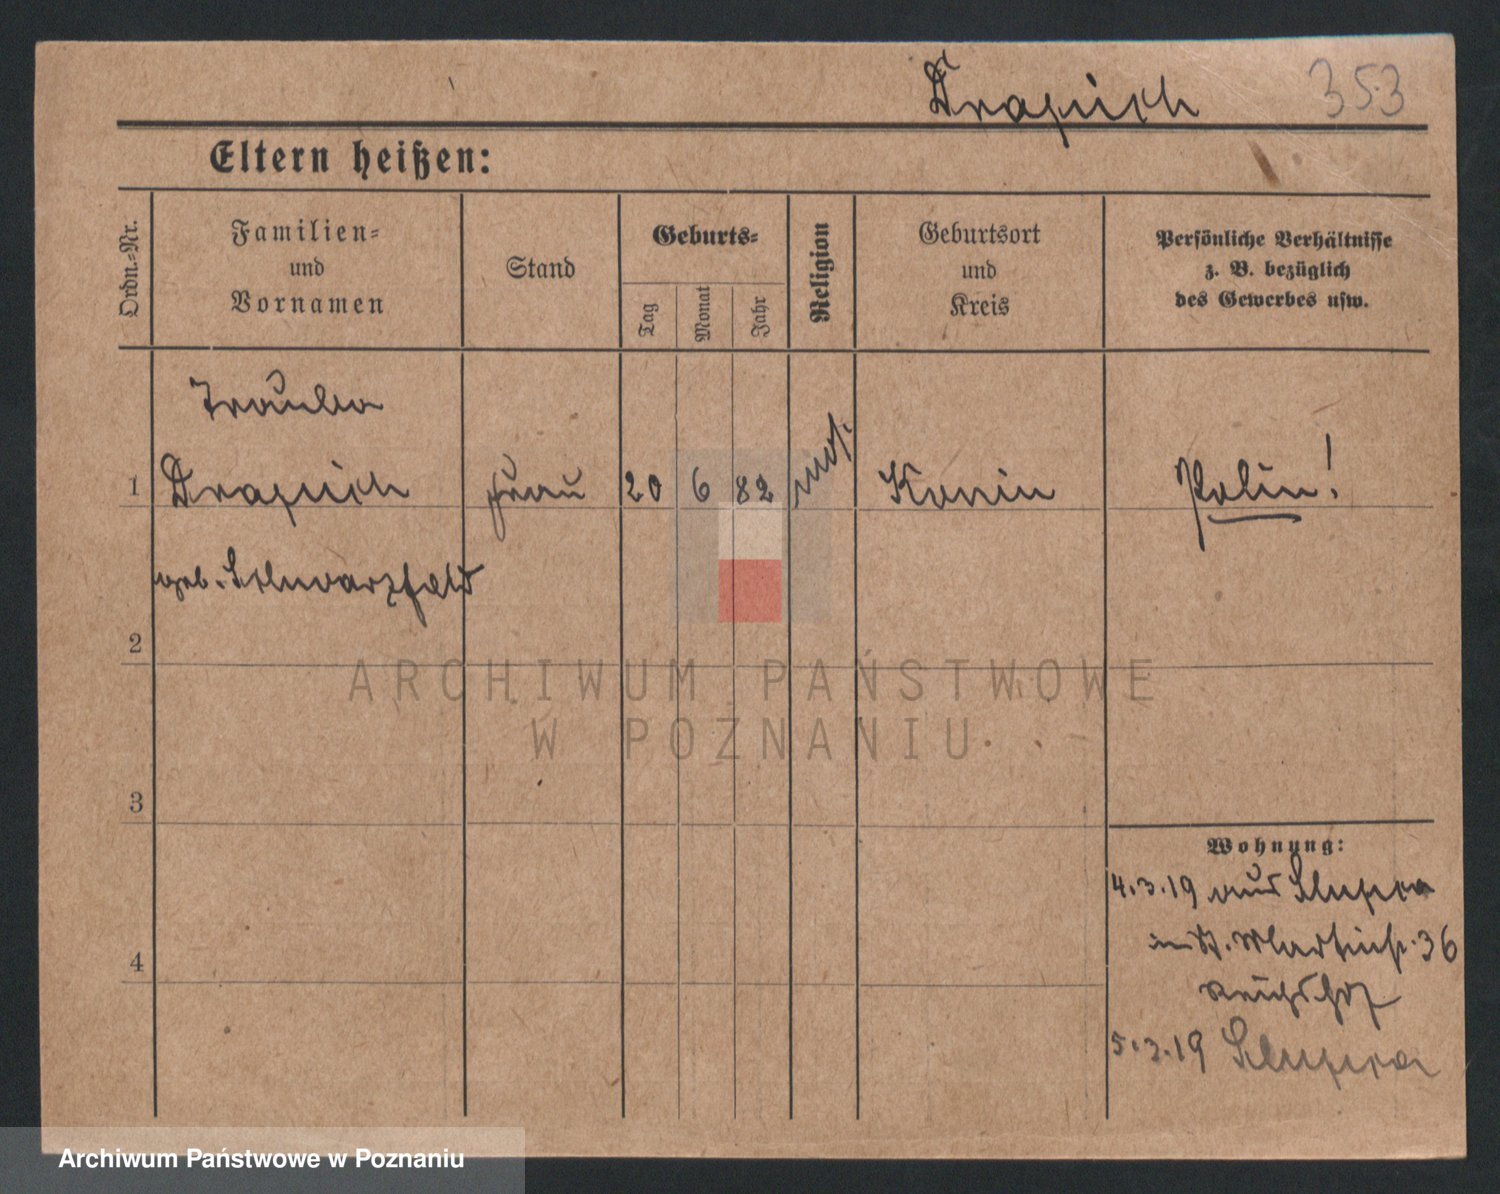 Drapich 353
Eltern heißen:
Ordn.-Nr.
Familien-
und
Vornamen
Stand
Geburts-
Tag
Monat
Jahr
Religion
Geburtsort
und
Kreis
Persönliche Verhältnisse
z. B. bezüglich
des Gewerbes usw.
1
Drapich
Frau
20 6 82
mos.
Konin
Polin!
geb. Schwarzfeld
2
3
4
Wohnung:
4.3.19 aus Slupca
in St. Martinstr. 36
Reichshof
5.3.19 Slupca
ARCHIWUM PAŃSTWOWE
W POZNANIU
Archiwum Państwowe w Poznaniu